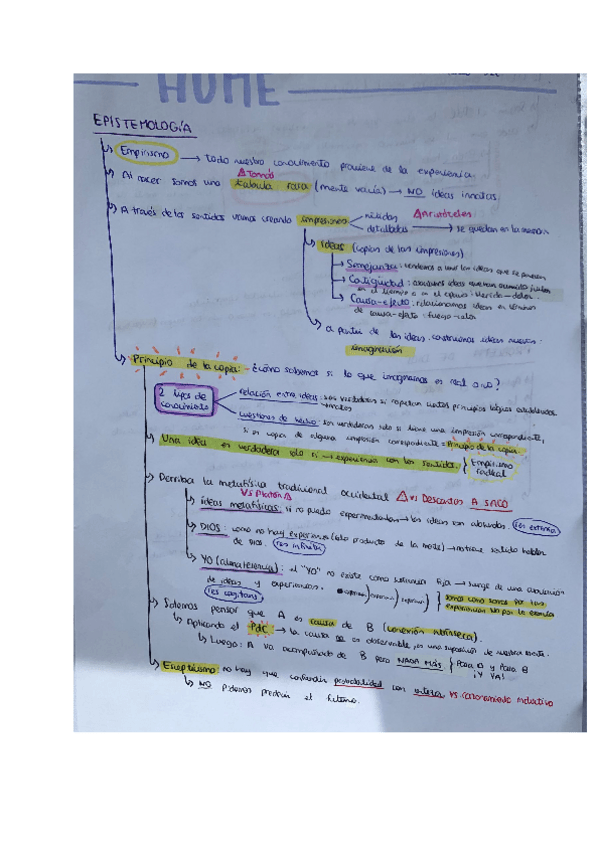 HUME
EPISTEMOLOGÍA
Empirismo → todo nuestro conocimiento proviene de la experiencia.
△Tomás
Al nacer somos una tabula rasa (mente vacía) → NO ideas innatas.
A través de los sentidos vamos creando impresiones
nítidas
△Aristóteles
detalladas → se quedan en la memoria
ideas (copias de las impresiones)
Semejanza: tendemos a unir las ideas que se parecen
Contigüidad: asociamos ideas que han ocurrido juntas
en el tiempo o en el espacio: herida-dolor.
Causa-efecto: relacionamos ideas en términos
de causa-efecto: fuego-calor
a partir de las ideas construimos ideas nuevas:
imaginación
Principio de la copia: ¿cómo sabemos si lo que imaginamos es real o no?
2 tipos de conocimiento
relación entre ideas: son verdaderas si respetan ciertos principios lógicos establecidos.
cuestiones de hecho: son verdaderas solo si tiene una impresión correspondiente,
si es copia de alguna impresión correspondiente = Principio de la copia.
Una idea es verdadera solo si → experiencia con los sentidos. } Empirismo radical
Derriba la metafísica tradicional occidental △ vs Descartes A SACO
VS Platón △
ideas metafísicas: si no puedo experimentarlas → las ideas son absurdas. res extensa
DIOS: como no hay experiencia (solo producto de la mente) → no tiene sentido hablar
de Dios. res infinita
YO (alma/esencia): el "YO" no existe como sustancia fija → surge de una asociación
de ideas y experiencias.
res cogitans
somos como somos por las
experiencias no por la esencia
Solemos pensar que A es causa de B (conexión intrínseca).
Aplicando el PdC → la causa no es observable, es una suposición de nuestra mente.
Luego: A va acompañado de B pero NADA MÁS { Pasa A y Pasa B
¡Y YA!
Escepticismo: no hay que confundir probabilidad con certeza vs razonamiento inductivo
NO podemos predecir el futuro.